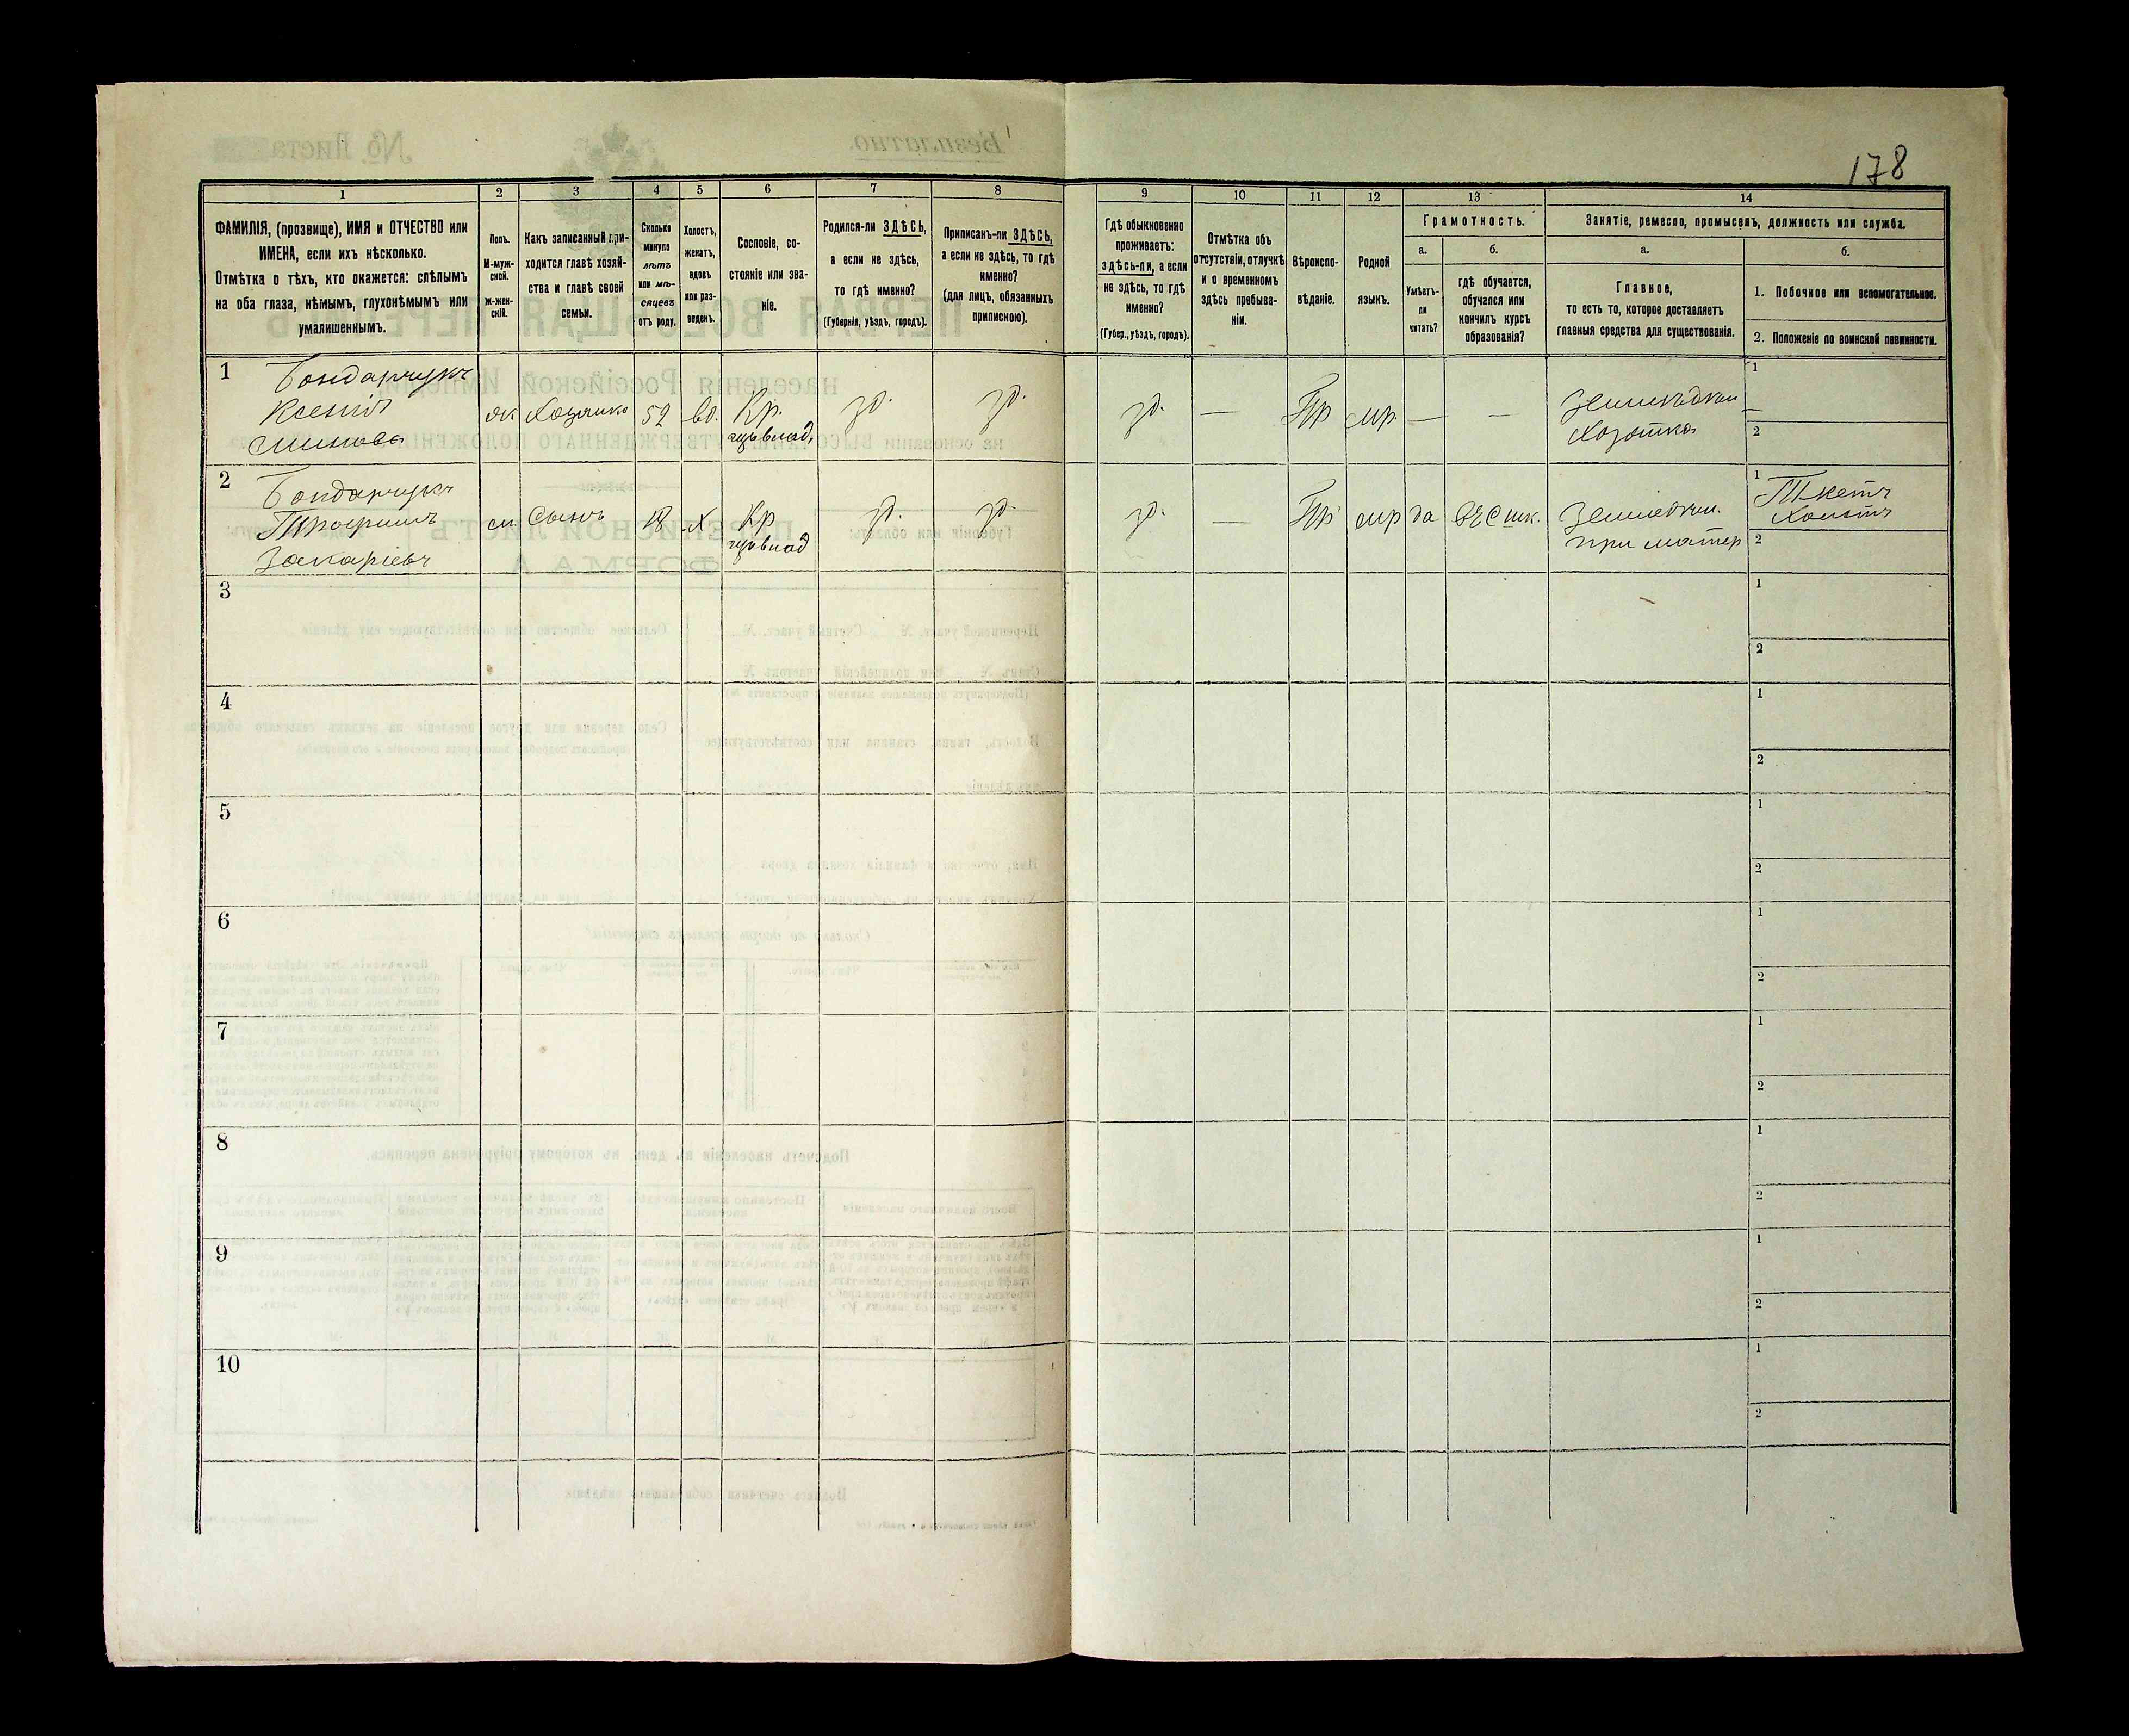 178
1
2
3
4
5
6
7
8
9
10
11
12
13
14
ФАМИЛІЯ, (прозвище), ИМЯ и ОТЧЕСТВО или
ИМЕНА, если ихъ нѣсколько.
Отмѣтка о тѣхъ, кто окажется: слѣпымъ
на оба глаза, нѣмымъ, глухонѣмымъ или
умалишеннымъ.
Полъ.
М-муж-
ской.
Ж-жен-
скій.
Какъ записанный при-
ходится главѣ хозяй-
ства и главѣ своей
семьи.
Сколько
минуло
лѣтъ
или мѣ-
сяцевъ
отъ роду.
Холостъ,
женатъ,
вдовъ
или раз-
веденъ.
Сословіе, со-
стояніе или зва-
ніе.
Родился-ли ЗДѢСЬ,
а если не здѣсь,
то гдѣ именно?
(Губернія, уѣздъ, городъ).
Приписанъ-ли ЗДѢСЬ,
а если не здѣсь, то гдѣ
именно?
(для лицъ, обязанныхъ
припискою).
Гдѣ обыкновенно
проживаетъ:
здѣсь-ли, а если
не здѣсь, то гдѣ
именно?
(Губер., уѣздъ, городъ).
Отмѣтка объ
отсутствіи, отлучкѣ
и о временномъ
здѣсь пребыва-
ніи.
Вѣроиспо-
вѣданіе.
Родной
языкъ.
Грамотность.
а.
Умѣетъ-
ли
читать?
б.
гдѣ обучается,
обучался или
кончилъ курсъ
образованія?
Занятіе, ремесло, промыселъ, должность или служба.
а.
Главное,
то есть то, которое доставляетъ
главныя средства для существованія.
б.
1. Побочное или вспомогательное.
2. Положеніе по воинской повинности.
1
Бондарчукъ
Ксенія
ж
Хозяйка
52
вд.
Кр.
зд.
зд.
зд.
—
Пр
мр.
—
—
Хозяйка
1
2
2
Бондарчукъ
Трофимъ
Захаріевъ
м
Сынъ
18
Х
Кр
зд.
зд.
зд.
—
Пр
мр
да
шк.
при матер
1
2
3
1
2
4
1
2
5
1
2
6
1
2
7
1
2
8
1
2
9
1
2
10
1
2